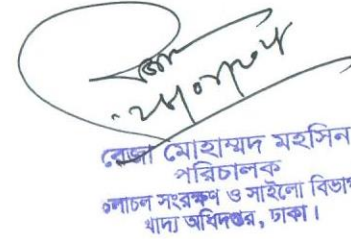 রেজা মোহাম্মদ মহসিন
পরিচালক
চলাচল সংরক্ষণ ও সাইলো বিভাগ
খাদ্য অধিদপ্তর, ঢাকা।